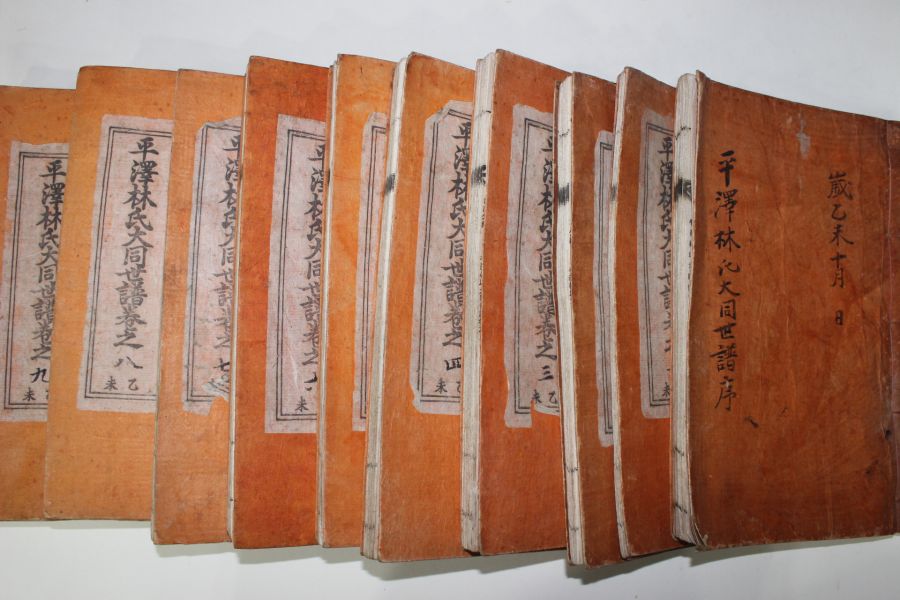 歲乙未十月 日
平澤林氏大同世譜序
平澤林
平澤林氏大同世譜卷之三
乙
未
平澤林氏大同世譜卷之四
乙
未
平澤林氏大同世譜卷之
未
平澤林氏大同世譜卷之七
平澤林氏大同世譜卷之八
乙
未
平澤林氏大同世譜卷之九
乙
未